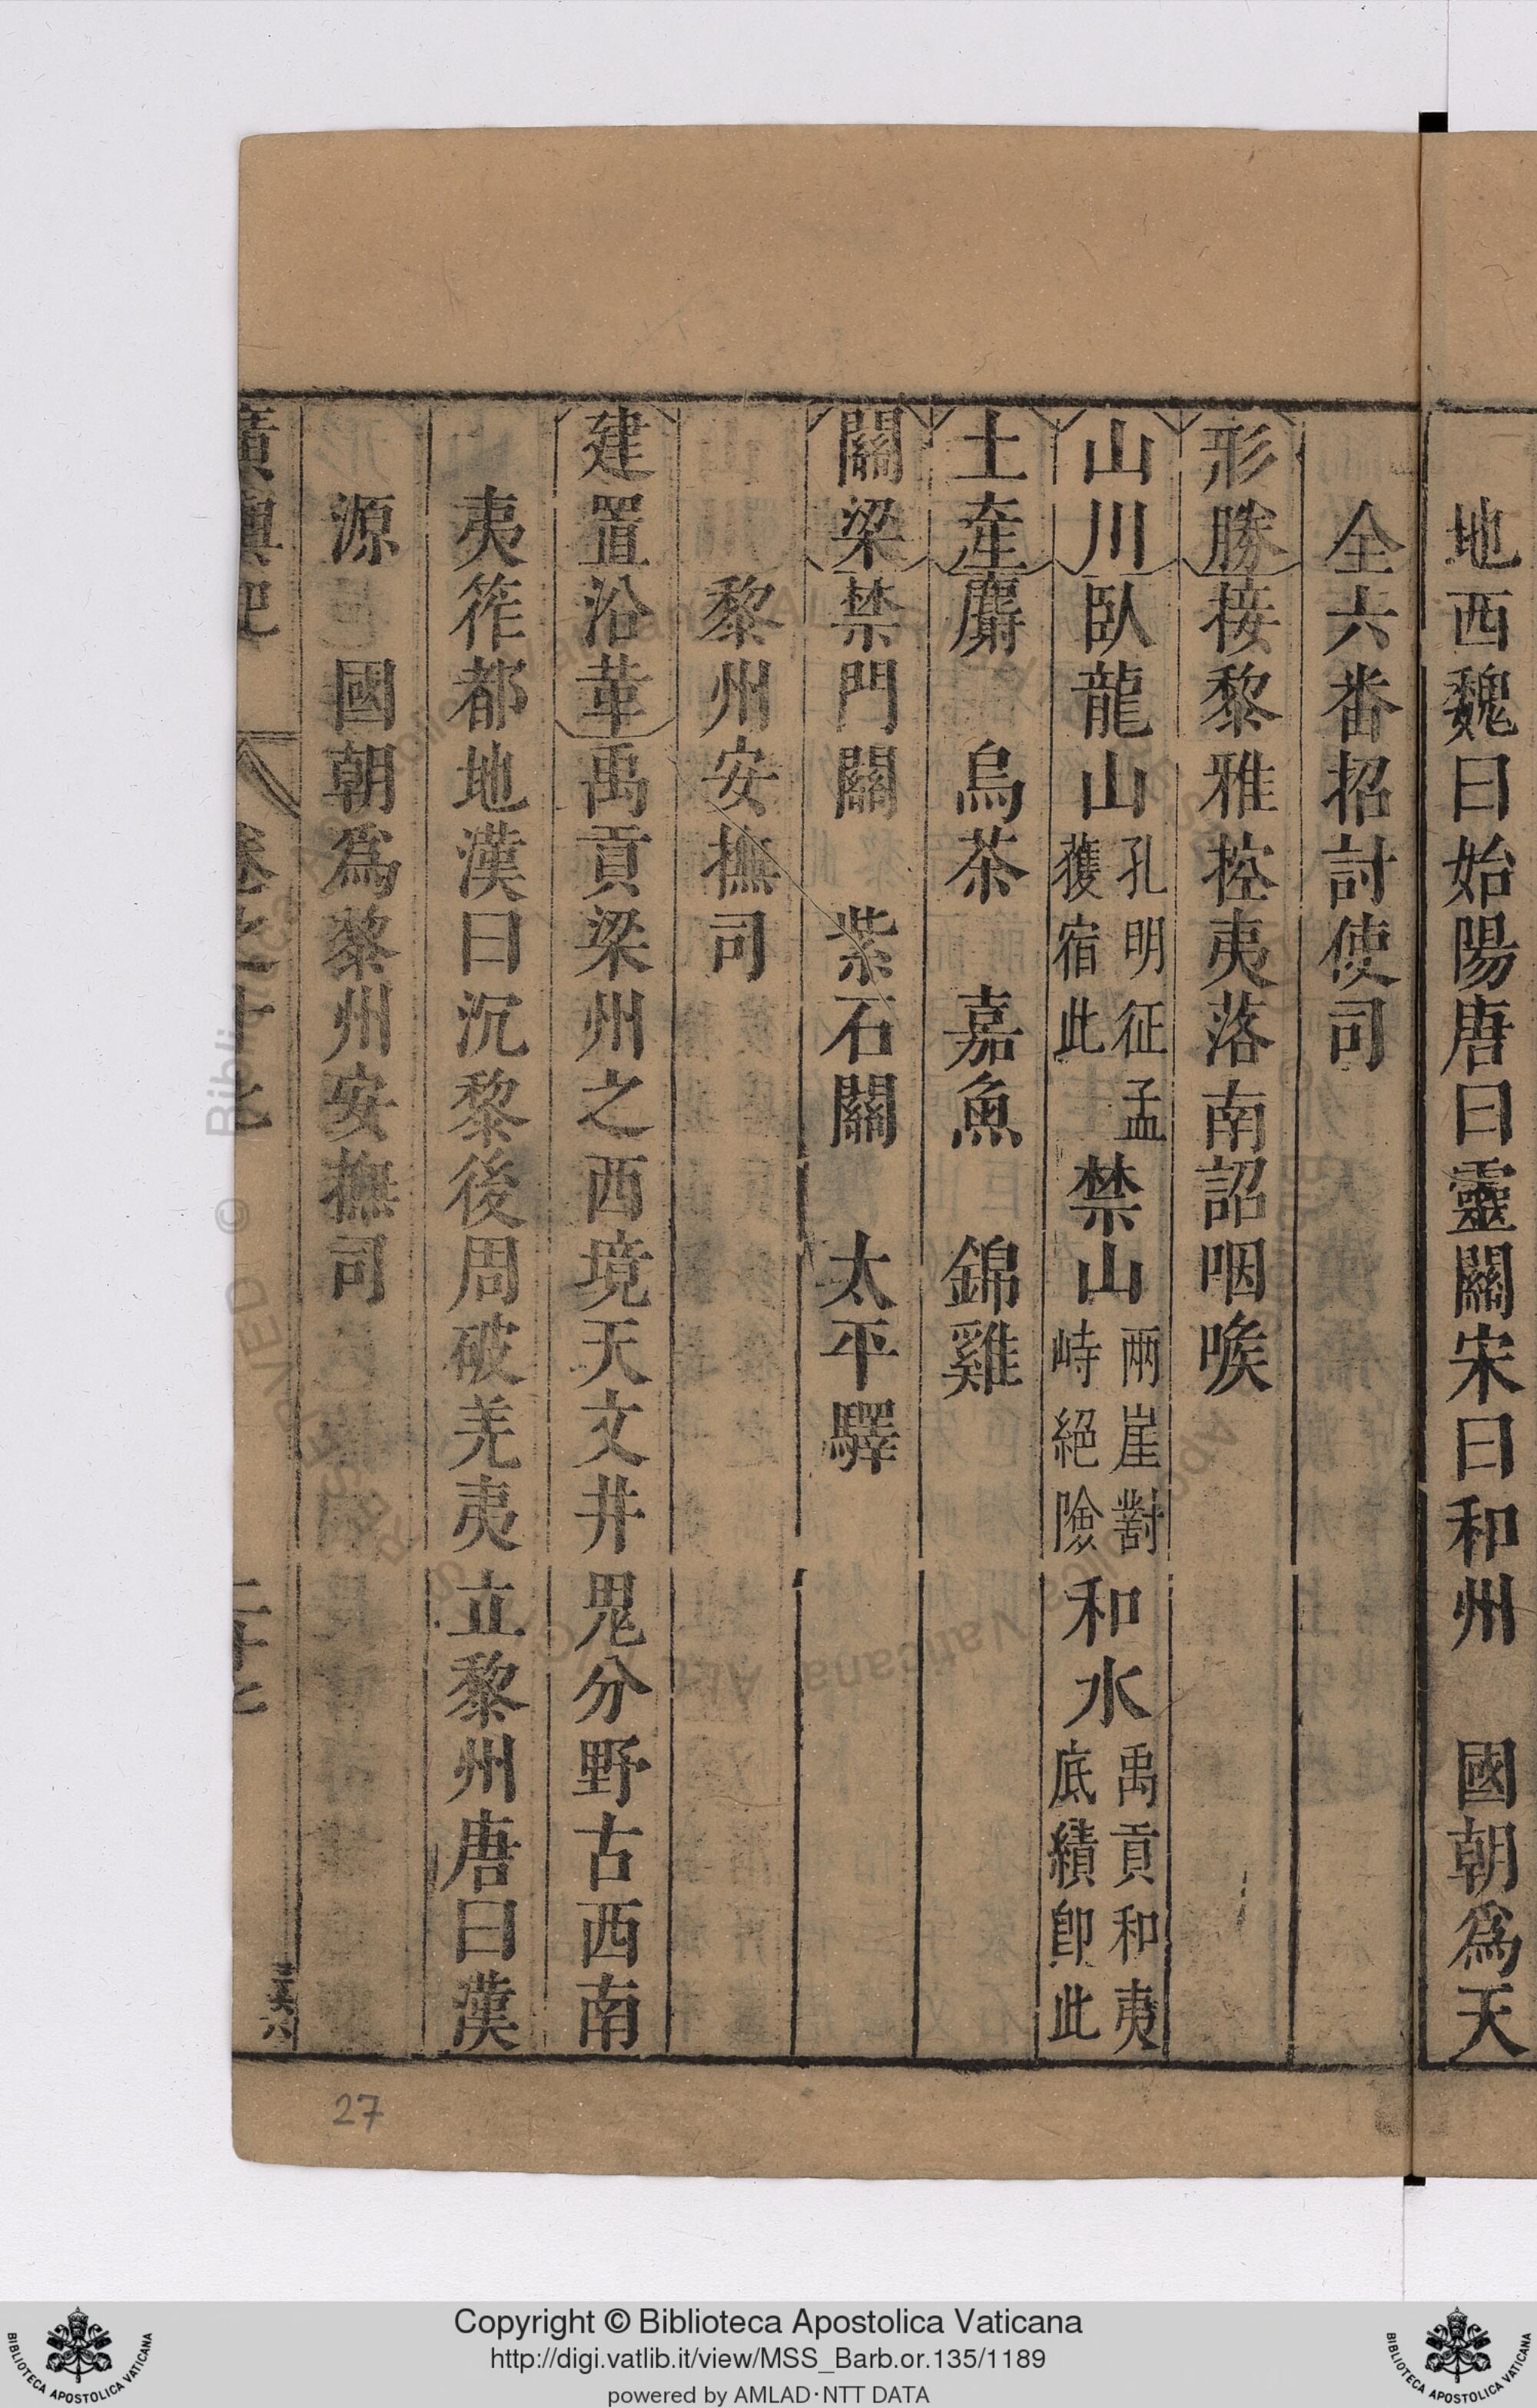 地西魏曰始陽唐曰靈關宋曰和州　國朝爲天
全六番招討使司
形勝接黎雅控夷落南詔咽喉
山川臥龍山孔明征孟獲宿此禁山兩崖對峙絕險和水禹貢和夷底績卽此
土產麝　烏茶　嘉魚　錦雞
關梁禁門關　紫石關　太平驛
黎州安撫司
建置沿革禹貢梁州之西境天文井鬼分野古西南
夷筰都地漢曰沉黎後周破羌夷立黎州唐曰漢
源　國朝爲黎州安撫司
廣輿記　卷之十七　二十七
27
Copyright © Biblioteca Apostolica Vaticana
http://digi.vatlib.it/view/MSS_Barb.or.135/1189
powered by AMLAD·NTT DATA
BIBLIOTECA APOSTOLICA VATICANA
BIBLIOTECA APOSTOLICA VATICANA